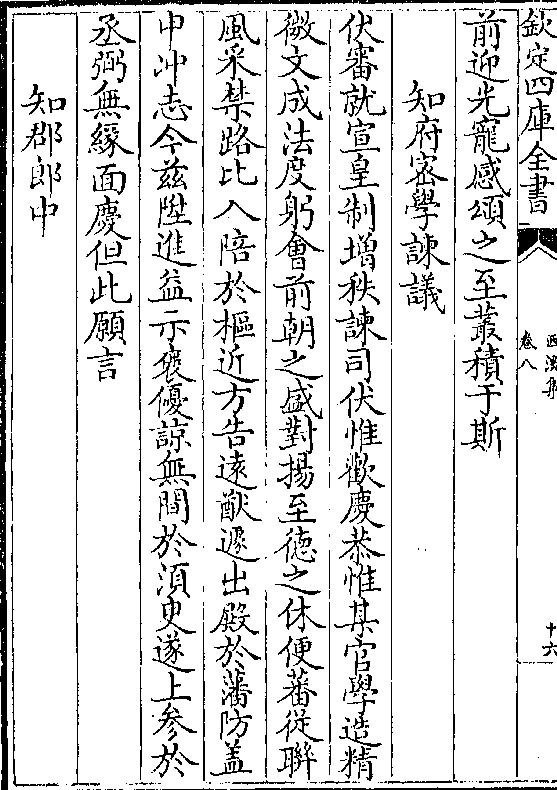 欽定四庫全書
西溪集
卷八
十六
前迎光寵感頌之至叢積于斯
知府密學諫議
伏審就宣皇制增秩諫司伏惟歡慶恭惟某官學造精
微文成法度躬會前朝之盛對揚至德之休便蕃從聯
風采禁路比入陪於樞近方告遠猷遽出殿於藩防蓋
申沖志今兹陞進益示褒優諒無間於湏臾遂上參於
丞弼無緣面慶但此願言
知郡郎中